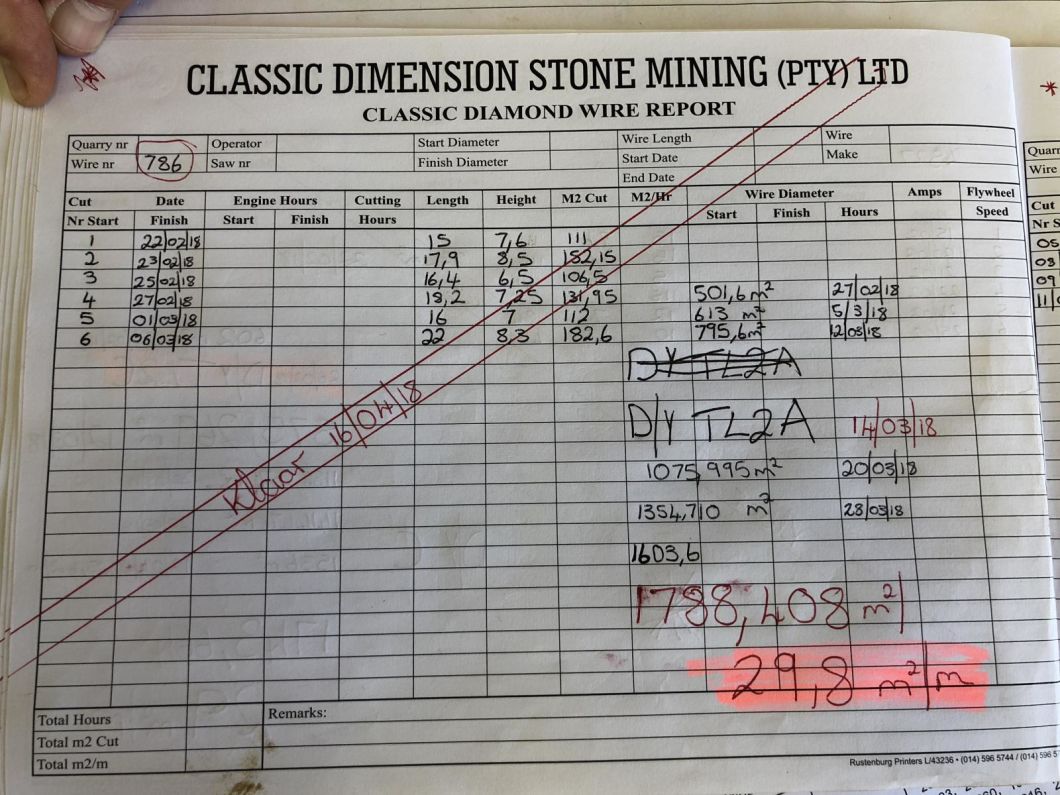 CLASSIC DIMENSION STONE MINING (PTY) LTD
CLASSIC DIAMOND WIRE REPORT
Quarry nr Operator Start Diameter Wire Length Wire
Wire nr 786 Saw nr Finish Diameter Start Date Make
End Date
Cut Date Engine Hours Cutting Length Height M2 Cut M2/Hr Wire Diameter Amps Flywheel
Nr Start Finish Start Finish Hours Start Finish Hours Speed
1 22/02/18 15 7,6 111
2 23/02/18 17,9 8,5 152,15
3 25/02/18 16,4 6,5 106,5
4 27/02/18 18,2 7,25 131,95 501,6 m² 27/02/18
5 01/03/18 16 7 112 613 m² 5/3/18
6 06/03/18 22 8,3 182,6 795,6 m² 12/03/18
D/Y TL2A
D/Y TL2A 14/03/18
1075,995 m² 20/03/18
1354,710 m² 28/03/18
1603,6
1788,408 m²
29,8 m²/m
Klaar 16/04/18
Total Hours Remarks:
Total m2 Cut
Total m2/m
Rustenburg Printers L/43236 • (014) 596 5744 / (014) 596 5
Quarr
Wire
Cut
Nr S
05
03
09
11/0